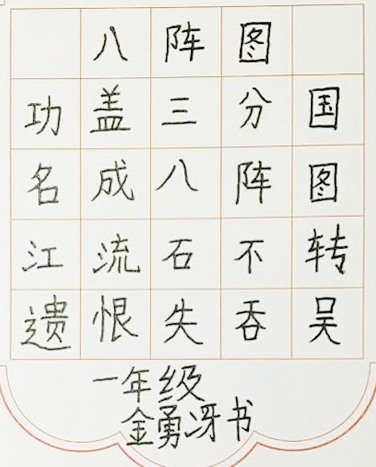 八阵图
功盖三分国
名成八阵图
江流石不转
遗恨失吞吴
一年级
金勇冴书